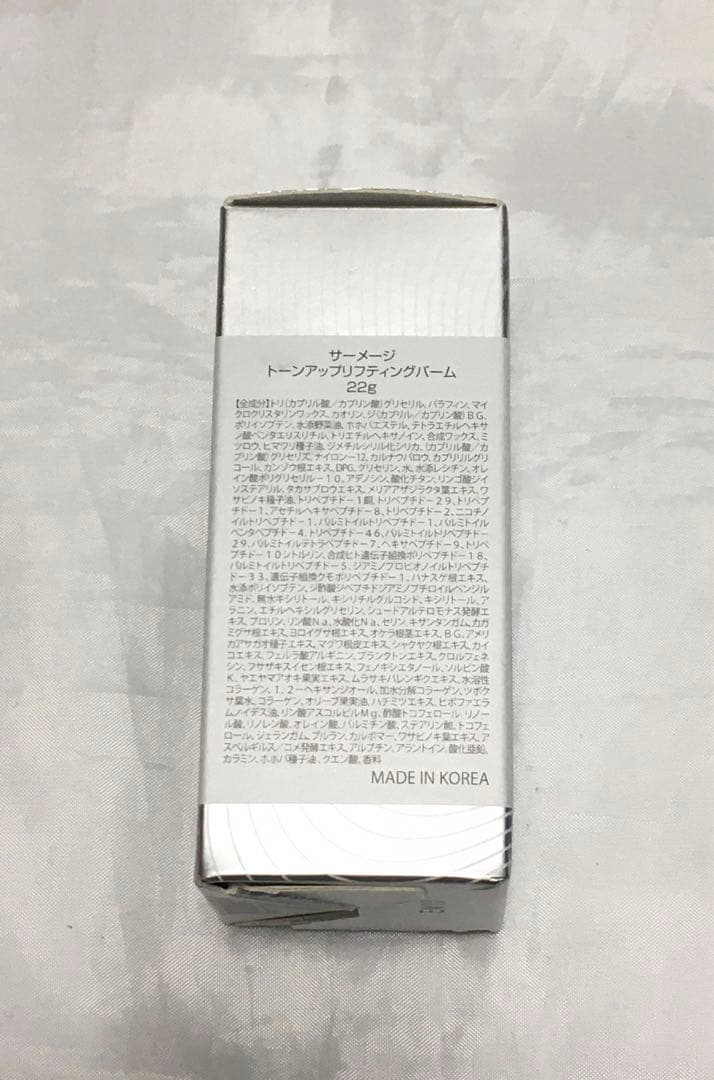 サーメージ
トーンアップリフティングバーム
22g
【全成分】トリ(カプリル酸/カプリン酸)グリセリル、パラフィン、マイ
クロクリスタリンワックス、カオリン、ジ(カプリル/カプリン酸)BG、
ポリイソブテン、水添野菜油、ホホバエステル、テトラエチルヘキサ
ン酸ペンタエリスリチル、トリエチルヘキサノイン、合成ワックス、ミ
ツロウ、ヒマワリ種子油、ジメチルシリル化シリカ、(カプリル酸/カ
プリン酸)グリセリズ、ナイロン-12、カルナウバロウ、カプリリルグリ
コール、カンゾウ根エキス、DPG、グリセリン、水、水添レシチン、オレイ
ン酸ポリグリセリル-10、アデノシン、酸化チタン、リンゴ酸ジイ
ソステアリル、タカサブロウエキス、メリアアザジラクタ葉エキス、ワ
サビノキ種子油、トリペプチド-1銅、トリペプチド-29、トリペプ
チド-1、アセチルヘキサペプチド-8、トリペプチド-2、ニコチノ
イルトリペプチド-1、パルミトイルトリペプチド-1、パルミトイル
ペンタペプチド-4、トリペプチド-46、パルミトイルトリペプチド-
29、パルミトイルテトラペプチド-7、ヘキサペプチド-9、トリペ
プチド-10シトルリン、合成ヒト遺伝子組換ポリペプチド-18、
パルミトイルトリペプチド-5、ジアミノプロピオノイルトリペプチ
ド-33、遺伝子組換クモポリペプチド-1、ハナスゲ根エキス、
水添ポリイソブテン、ジ酢酸ジペプチドジアミノブチロイルベンジル
アミド、無水キシリトール、キシリチルグルコシド、キシリトール、ア
ラニン、エチルヘキシルグリセリン、シュードアルテロモナス発酵エ
キス、プロリン、リン酸Na、水酸化Na、セリン、キサンタンガム、カガ
ミグサ根エキス、ヨロイグサ根エキス、オケラ根茎エキス、BG、アメリ
カアサガオ種子エキス、マグワ根皮エキス、シャクヤク根エキス、カイ
コエキス、フェルラ酸アルギニン、プランクトンエキス、クロルフェネ
シン、フサザキスイセン根エキス、フェノキシエタノール、ソルビン酸
K、ヤエヤマアオキ果実エキス、ムラサキバレンギクエキス、水溶性
コラーゲン、1,2-ヘキサンジオール、加水分解コラーゲン、ツボク
サ葉水、コラーゲン、オリーブ果実油、ハチミツエキス、ヒポファエラ
ムノイデス油、リン酸アスコルビルMg、酢酸トコフェロール、リノー
ル酸、リノレン酸、オレイン酸、パルミチン酸、ステアリン酸、トコフェ
ロール、ジェランガム、プルラン、カルボマー、ワサビノキ葉エキス、ア
スペルギルス/コメ発酵エキス、アルブチン、アラントイン、酸化亜鉛、
カラミン、ホホバ種子油、クエン酸、香料
MADE IN KOREA